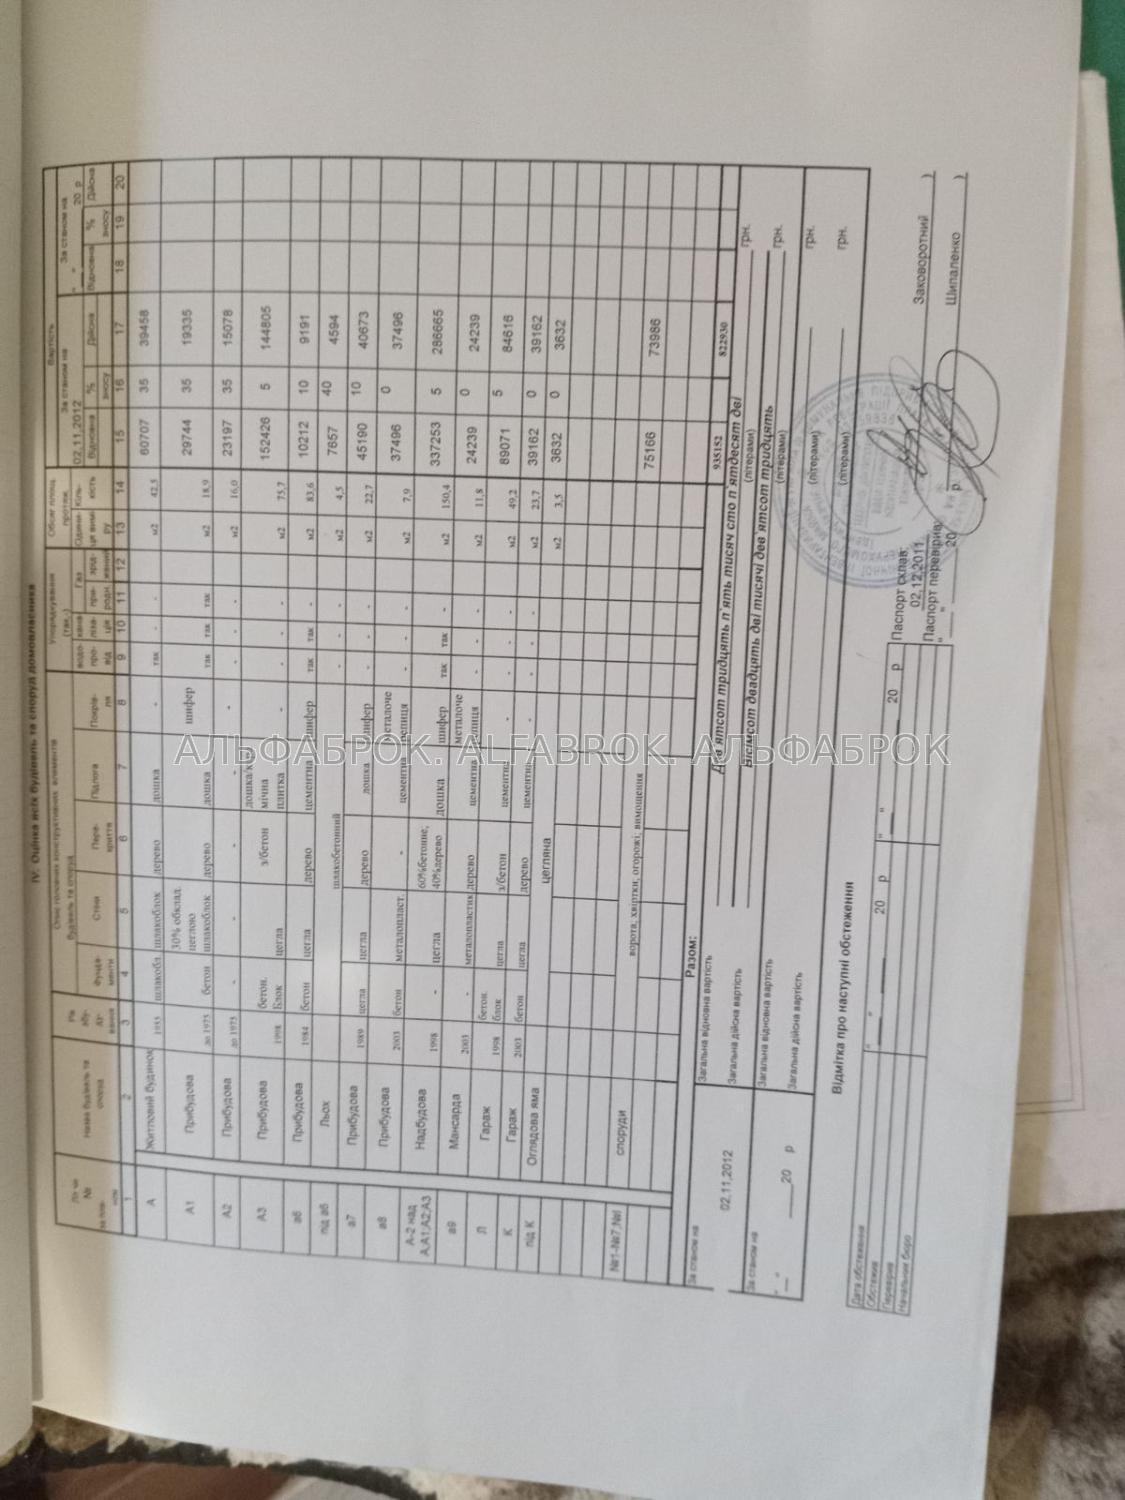 IV. Оцінка всіх будівель та споруд домовласника
Назва будівель та споруд
Опис головних конструктивних елементів будівель та споруд
Упорядкування (так,-)
Вартість
За станом на 02,11,2012
За станом на
" " 20 р
Фундаменти Стіни Перекриття Підлога Покрівля
Відновна % зносу Дійсна Відновна % зносу Дійсна
1 2 3 4 5 6 7 8 9 10 11 12 13 14 15 16 17 18 19 20
А Житловий будинок 1955 шлакобл шлакоблок дерево дошка - так - - м2 42,5 60707 35 39458
А1 Прибудова до 1975 бетон 30% обклад. цеглою шлакоблок дерево дошка шифер так так так м2 18,9 29744 35 19335
А2 Прибудова до 1975 - - - - - - - - м2 16,0 23197 35 15078
А3 Прибудова 1998 бетон. Блок цегла з/бетон дошка/ мічна плитка - - - - м2 75,7 152426 5 144805
а6 Прибудова 1984 бетон цегла дерево цементна шифер так так - м2 83,6 10212 10 9191
під а6 Льох шлакобетонний м2 4,5 7657 40 4594
а7 Прибудова 1989 цегла цегла дерево дошка шифер - - - м2 22,7 45190 10 40673
а8 Прибудова 2003 бетон металопласт. - цементна - - - м2 7,9 37496 0 37496
А-2 над А,А1;А2;А3 Надбудова 1998 - цегла 60%бетонне, 40%дерево дошка шифер так так - м2 150,4 337253 5 286665
а9 Мансарда 2003 - металопластик дерево цементна металоче репиця - - - м2 11,8 24239 0 24239
Л Гараж 1998 бетон. блок цегла з/бетон цементна - - - - м2 49,2 89071 5 84616
К Гараж 2003 бетон цегла дерево цементна - - - м2 23,7 39162 0 39162
під К Оглядова яма цегляна м2 3,5 3632 0 3632
№1-№7;№І споруди ворота; хвіртки; огорожі; вимощення 75166 73986
Разом: 935152 822930
За станом на 02,11,2012
Загальна відновна вартість Дев`ятсот тридцять п`ять тисяч сто п`ятдесят дві грн.
(літерами)
Загальна дійсна вартість Вісімсот двадцять дві тисячі дев`ятсот тридцять грн.
(літерами)
За станом на
" " 20 р
Загальна відновна вартість грн.
(літерами)
Загальна дійсна вартість грн.
(літерами)
Відмітка про наступні обстеження
Дата обстеження " " 20 р " " 20 р
Обстежив
Перевірив
Начальник бюро
Паспорт склав: Заковоротний )
02,12,2011
Паспорт перевірив: Шипаленко )
" " 20 р.
АЛЬФАБРОК. ALFABROK. АЛЬФАБРОК